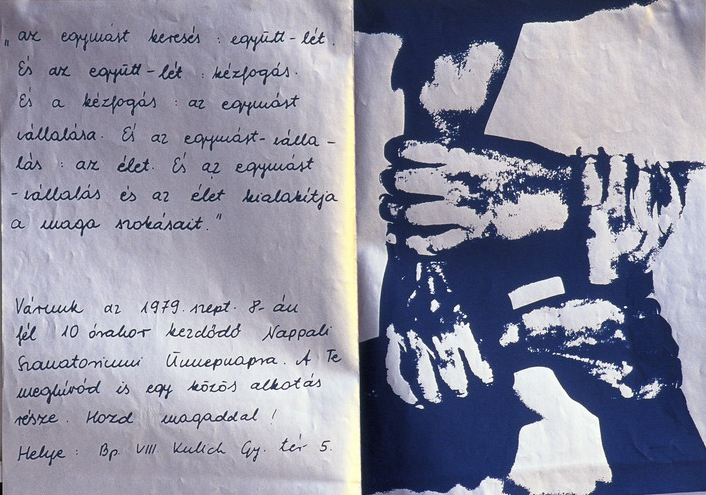 „az egymást keresés : együtt-lét.
És az együtt-lét : kézfogás.
És a kézfogás : az egymást
vállalása. És az egymást-válla-
lás : az élet. És az egymást
-vállalás és az élet kialakítja
a maga szokásait."
Várunk az 1979. szept. 8-án
fél 10 órakor kezdődő Nappali
Szanatoriumi Ünnepnapra. A Te
meghívód is egy közös alkotás
része. Hozd magaddal !
Helye : Bp. VIII Kulich Gy. tér 5.